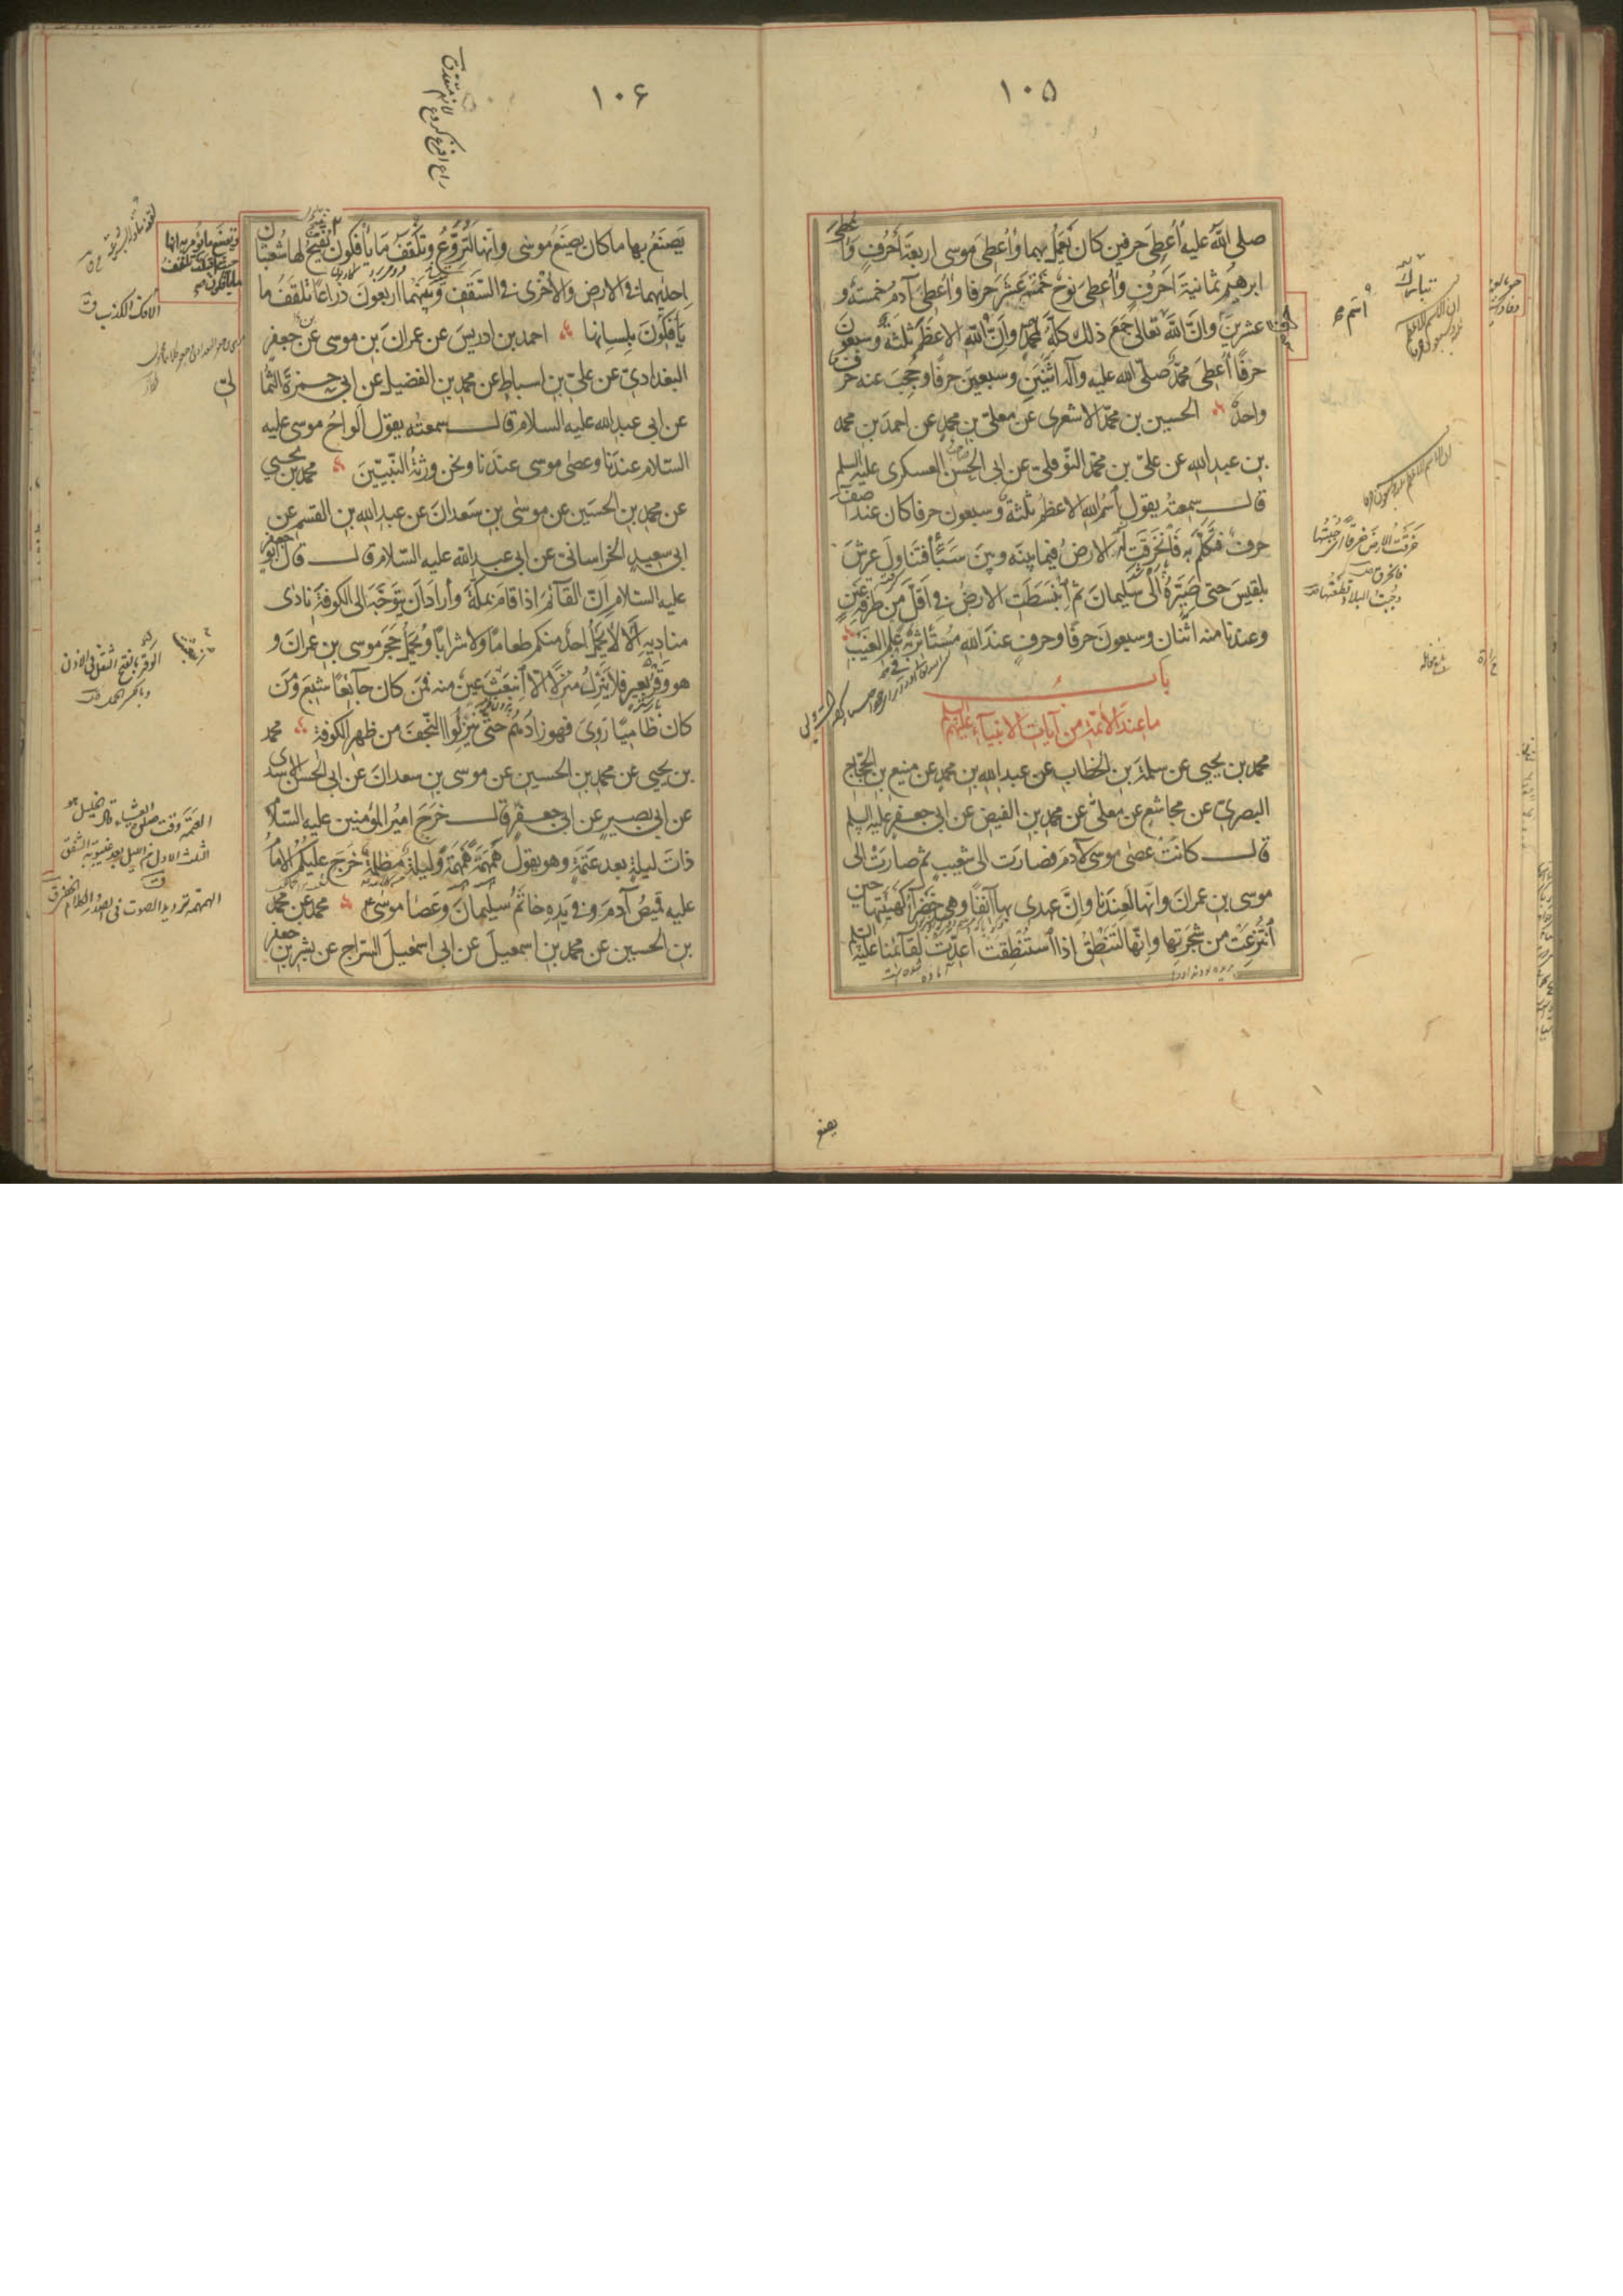 ١٠٥
صلى اللّه عليه أُعطِىَ حرفين كان يَعْمَلُ بهما وأُعطِىَ موسى اربعةَ اَحرُفٍ وأُعطِىَ
ابرهيم ثمانيةَ اَحرُفٍ وأُعطِىَ نوحٌ خمسةَ عشرَ حرفا وأُعطِىَ آدمُ خمسةً و
عشرين حرفا وانّ اللّه تعالى جمع ذلك كلّه لمحمد وانّ اسم اللّه الاعظم ثلثة وسبعون
حرفًا أُعطِىَ محمّدٌ صلّى اللّه عليه وآله اثنين وسبعين حرفًا وحُجِبَ عنه حرف
واحدٌ الحسين بن محمّد الاشعرى عن معلّى بن محمدٍ عن احمدَ بن محمد
بن عبد اللّه عن علىّ بن محمّد النّوفلىّ عن ابى الحسن العسكرى عليه السلم
قال سمعته يقول اسمُ اللّه الاعظم ثلثة وسبعون حرفا كان عند آصف
حرف فتكلّم به فَانْخَرَقَت له الارضُ فيما بينه وبين سَبَأٍ فتناول عرشَ
بلقيسَ حتى صَيَّرَهُ الى سُليمانَ ثم انْبَسَطَت الارضُ فى اقلّ من طرفة عينٍ
وعندنا منه اثنان وسبعون حرفًا وحرف عند اللّه مُستَأثَرٌ به فى علم الغيب
باب
ما عند الأئمّة من آيات الانبياء عليهم السلم
محمد بن يحيى عن سلمة بن الخطاب عن عبد اللّه بن محمد عن منيع بن الحجّاج
البصرى عن مجاشع عن معلّى عن محمد بن الفيض عن ابى جعفر عليه السلم
قال كانت عصى موسى لآدمَ فصارت الى شعيب ثم صارت الى
موسى بن عمران وانّها لعندنا وانّ عهدى بها آنفًا وهى خضراء كهيئتها حين
انْتُزِعَتْ من شجرتها وانّها لتنطِقُ اذا استُنْطِقت اُعدّت لقائمنا عليه السلم
يصنع
١٠۶
يَصْنَعُ بها ما كان يصنَعُ موسٰى وانّها لَتُروّعُ وتَلْقَفُ ما يأفكون يُفتَحُ لها شُعبتان
اِحديٰهما فى الارض والأُخرى فى السّقف وبينهما اربعون ذراعًا تلقَفُ ما
يأفكونَ بلِسانها احمد بن ادريسَ عن عمران بن موسى عن موسى بن جعفر
البغدادىّ عن علىّ بن اسباطٍ عن محمد بن الفضيل عن ابى حمزة الثمالىّ
عن ابى عبد اللّه عليه السلام قال سمعته يقول الواحُ موسى عليه
السّلام عندنا وعصٰى موسى عندنا ونحن ورثةُ النّبيّين محمد بن يحيى
عن محمد بن الحسين عن موسى بن سعدانَ عن عبد اللّه بن القسم عن
ابى سعيدٍ الخراسانىّ عن ابى عبد اللّه عليه السّلام قال قال ابو جعفر
عليه السّلام انّ القائمَ اذا قام بمكّة وأراد أن يتوجّه الى الكوفة نادى
مناديه اَلا لا يَحْمِلُ احدٌ منكم طعامًا ولا شرابًا ويَحمِلُ حَجَر موسى بن عمرانَ و
هو وِقْرُ بعيرٍ فلا ينزِلُ منزلًا الّا انبعَثَ عينٌ منه فمَن كان جائعًا شبع ومَن
كان ظامئًا رَوِىَ فهو زادُهم حتى ينزِلوا النّجفَ من ظهر الكوفة محمد
بن يحيى عن محمد بن الحسين عن موسى بن سعدان عن ابى الحسن الاسدى
عن ابى بصير عن ابى جعفر قال خرجَ اميرُ المؤمنين عليه السّلام
ذاتَ ليلةٍ بعد عتمةٍ وهو يقول همهمةً همهمةً وليلةً مُظلِمةً خرج عليكم الامامُ
عليه قميصُ آدمَ وفى يَدِه خاتمُ سليمانَ وعَصا موسى ع محمد عن محمد
بن الحسين عن محمد بن اسمعيلَ عن ابى اسمعيلَ السرّاج عن بشر بن جعفر
الافك الكذب ق
الوقر بالفتح الثقل فى الاذن
وبالكسر الحمل
العتمة وقت صلوة العشاء قال الخليل هو
الثلث الاول من الليل بعد غيبوبة الشفق
الهمهمة ترديد الصوت فى الصدر
خرقت الارض خرقًا اى جُبتها
وجُبت البلاد قطعتها